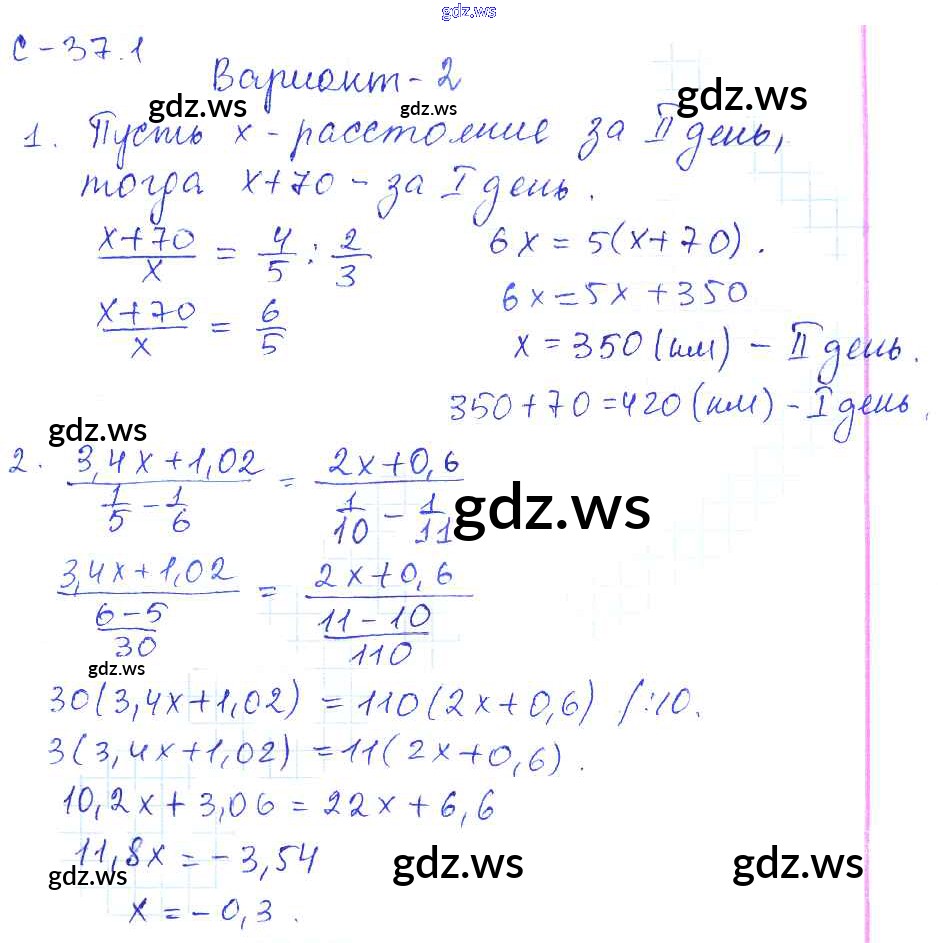 gdz.ws
С-37.1
Вариант-2
gdz.ws gdz.ws gdz.ws
1. Пусть x - расстояние за II день,
тогда x+70 - за I день.
(x+70)/x = 4/5 : 2/3
(x+70)/x = 6/5
6x = 5(x+70).
6x = 5x + 350
x = 350 (км) - II день.
350 + 70 = 420 (км) - I день.
gdz.ws
2. (3,4x+1,02)/(1/5 - 1/6) = (2x+0,6)/(1/10 - 1/11)
gdz.ws
(3,4x+1,02)/((6-5)/30) = (2x+0,6)/((11-10)/110)
gdz.ws
30(3,4x+1,02) = 110(2x+0,6) /:10.
3(3,4x+1,02) = 11(2x+0,6).
10,2x + 3,06 = 22x + 6,6
11,8x = -3,54
gdz.ws gdz.ws gdz.ws
x = -0,3.